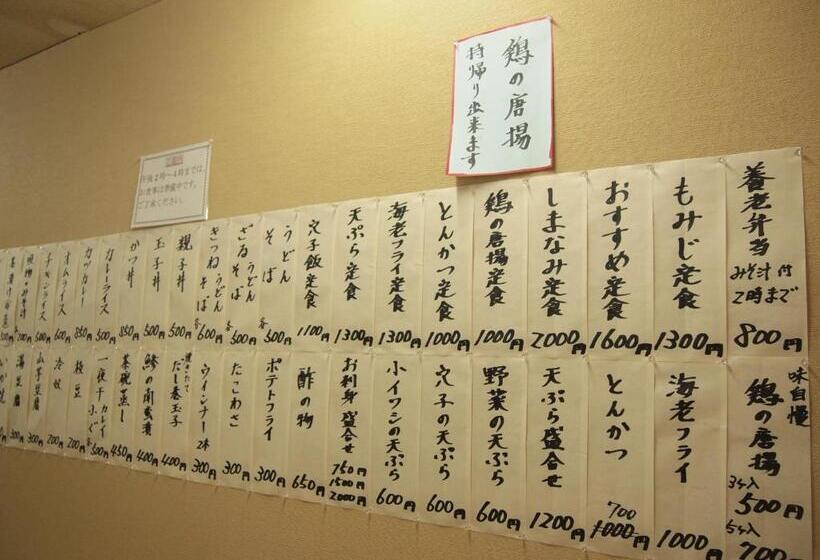 鶏の唐揚
持帰り出来ます
午後2時〜4時までは、
お食事は準備中です。
ご了承ください。
養老弁当
みそ汁付
2時まで
800円
もみじ定食
1300円
おすすめ定食
1600円
しまなみ定食
2000円
鶏の唐揚定食
1000円
とんかつ定食
1000円
海老フライ定食
1300円
天ぷら定食
1300円
穴子飯定食
1100円
うどん
そば
各500円
ざるうどん
そば
各500円
きつねうどん
そば
各600円
親子丼
500円
玉子丼
500円
かつ丼
850円
カレーライス
500円
カツカレー
850円
オムライス
600円
チキンライス
500円
味自慢
鶏の唐揚
3ケ入
500円
5ケ入
700円
海老フライ
1000円
とんかつ
700
1000円
天ぷら盛合せ
1200円
野菜の天ぷら
600円
穴子の天ぷら
600円
小イワシの天ぷら
600円
お刺身盛合せ
750円
1500円
2000円
酢の物
650円
ポテトフライ
300円
たこわさ
300円
ウインナー2本
300円
焼きたて
だし巻玉子
400円
鯵の南蛮漬
400円
茶碗蒸し
450円
一夜干カレイ
ふぐ
各500円
枝豆
200円
冷奴
200円
山芋豆腐
300円
湯豆腐
300円